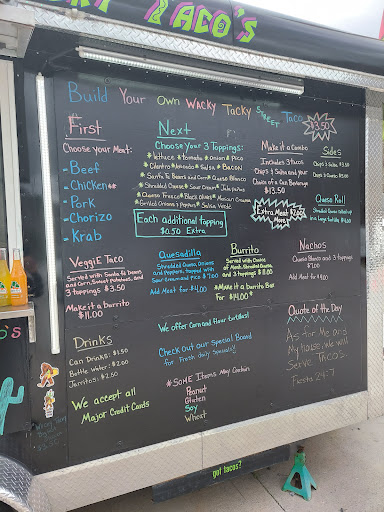 TACO'S
Build Your Own Wacky Tacky Street Taco
$3.50
First
Choose your Meat:
- Beef
- Chicken
- Pork
- Chorizo
- Krab
Next
Choose Your 3 Toppings:
*lettuce *tomato *Onion *Pico
*Cilantro *Avocado *Salsa *BACON
*Sante Fe Beans and Corn *Queso Blanco
*Shredded Queso *Sour Cream *Jalapeños
*Queso Fresco *Black Olives *Mexican Crema
*Grilled Onions & Peppers *Salsa Verde
Each additional topping
$0.50 Extra
Make it a Combo
Includes 3 Tacos
Chips & Salsa and your
Choice of a Can Beverage
$13.50
Extra Meat $2.00
More
Sides
Chips & Salsa $3.50
Chips & Queso $5.00
Queso Roll
Shredded Queso rolled up
in a large tortilla
Veggie Taco
Served with Sante Fe Beans
and Corn, Sweet Potatoes, and
3 toppings $3.50
Make it a burrito
$11.00
Quesadilla
Shredded Queso, Onions
and Peppers, topped with
Sour Cream and Pico $7.00
Add Meat for $4.00
Burrito
Served with Choice
of Meat, Shredded Queso,
and 3 toppings $11.00
*Make it a burrito Box
For $14.00*
Nachos
Queso Blanco and 3 toppings
$7.00
Add Meat for $4.00
Drinks
Can Drinks: $1.50
Bottle Water: $2.00
Jarritos: $2.50
We accept all
Major Credit Cards
We offer Corn and Flour tortillas!
Check out our Special Board
for Fresh daily Specials!
*SOME Items May Contain
Peanut
Gluten
Soy
Wheat
Quote of the Day
As for Me and
My house, We will
Serve TACO's
Fiesta 24:7
got tacos?